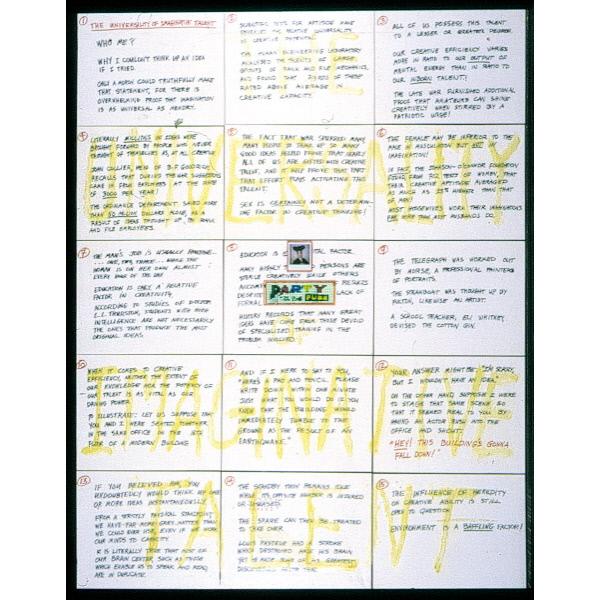 1
THE UNIVERSALITY OF IMAGINATIVE TALENT
WHO ME?
WHY I COULDN'T THINK UP AN IDEA
IF I TRIED.
ONLY A MORON COULD TRUTHFULLY MAKE
THAT STATEMENT, FOR THERE IS
OVERWHELMING PROOF THAT IMAGINATION
IS AS UNIVERSAL AS MEMORY.
2
SCIENTIFIC TESTS FOR APTITUDE HAVE
REVEALED THE RELATIVE UNIVERSALITY
OF CREATIVE POTENTIAL.
THE HUMAN ENGINEERING LABORATORY
ANALYSED THE TALENTS OF LARGE
GROUPS OF RANK AND FILE MECHANICS,
AND FOUND THAT OF THESE
RATED ABOVE AVERAGE IN
CREATIVE CAPACITY.
3
ALL OF US POSSESS THIS TALENT
TO A LESSER OR GREATER DEGREE.
OUR CREATIVE EFFICIENCY VARIES
MORE IN RATIO TO OUR OUTPUT OF
MENTAL ENERGY THAN IN RATIO TO
OUR INBORN TALENT!
THE LATE WAR FURNISHED ADDITIONAL
PROOF THAT AMATEURS CAN SHINE
CREATIVELY WHEN STIRRED BY A
PATRIOTIC URGE!
4
LITERALLY MILLIONS OF IDEAS WERE
BROUGHT FORWARD BY PEOPLE WHO NEVER
THOUGHT OF THEMSELVES AS AT ALL CREATIVE
JOHN COLLIER, HEAD OF B.F. GOODRICH,
RECALLS THAT DURING THE WAR SUGGESTIONS
CAME IN FROM EMPLOYEES AT THE RATE
OF 3000 PER YEAR!
THE ORDNANCE DEPARTMENT SAVED MORE
THAN 50 MILLION DOLLARS ALONE, AS A
RESULT OF IDEAS THOUGHT UP BY RANK
AND FILE EMPLOYEES.
5
THE FACT THAT WAR SPURRED MANY
MANY PEOPLE TO THINK UP SO MANY
GOOD IDEAS HELPED PROVE THAT NEARLY
ALL OF US ARE GIFTED WITH CREATIVE
TALENT, AND IT HELPS PROVE THAT
EFFORT PLAYS ACTIVATING THIS
TALENT.
SEX IS CERTAINLY NOT A DETERMIN-
ING FACTOR IN CREATIVE THINKING!
6
THE FEMALE MAY BE INFERIOR TO THE
MALE IN MUSCULATION BUT NOT IN
IMAGINATION!
IN FACT, THE JOHNSON-O'CONNOR FOUNDATION
FOUND FROM TESTS OF WOMEN, THAT
THEIR CREATIVE APTITUDE AVERAGED
AS MUCH AS 25% HIGHER THAN THAT
OF MEN!
MOST HOUSEWIVES WORK THEIR IMAGINATIONS
FAR MORE THAN MOST HUSBANDS DO.
7
THE MAN'S JOB IS USUALLY ROUTINE...
WHILE THE
WOMAN IS ON HER OWN ALMOST
EVERY HOUR OF THE DAY
EDUCATION IS ONLY A RELATIVE
FACTOR IN CREATIVITY.
ACCORDING TO STUDIES OF DOCTOR
L.L. THURSTON, STUDENTS WITH HIGH
INTELLIGENCE ARE NOT NECESSARILY
THE ONES THAT PRODUCE THE MOST
ORIGINAL IDEAS.
8
EDUCATION IS VITAL FACTOR.
MANY HIGHLY PERSONS ARE
STERILE CREATIVELY WHILE OTHERS
RESULTS
DESPITE LACK OF
FORMAL
PARTY
FUSE
HISTORY RECORDS THAT MANY GREAT
IDEAS HAVE COME FROM THOSE DEVOID
OF SPECIALIZED TRAINING IN THE
PROBLEM INVOLVED.
9
THE TELEGRAPH WAS WORKED OUT
BY MORSE, A PROFESSIONAL PAINTER
OF PORTRAITS.
THE STEAMBOAT WAS THOUGHT UP BY
FULTON, LIKEWISE AN ARTIST.
A SCHOOL TEACHER, ELI WHITNEY,
DEVISED THE COTTON GIN.
10
WHEN IT COMES TO CREATIVE
EFFICIENCY, NEITHER THE EXTENT OF
OUR KNOWLEDGE NOR THE POTENCY OF
OUR TALENT IS AS VITAL AS OUR
DRIVING POWER.
TO ILLUSTRATE: LET US SUPPOSE THAT
YOU AND I WERE SEATED TOGETHER
IN THE SAME OFFICE ON THE
FLOOR OF A MODERN BUILDING
11
AND IF I WERE TO SAY TO YOU,
"HERE'S A PAD AND PENCIL. PLEASE
WRITE DOWN WITHIN ONE MINUTE
JUST WHAT YOU WOULD DO IF YOU
KNEW THAT THE BUILDING WOULD
IMMEDIATELY TUMBLE TO THE
GROUND AS THE RESULT OF AN
EARTHQUAKE."
12
YOUR ANSWER MIGHT BE "I'M SORRY,
BUT I WOULDN'T HAVE AN IDEA."
ON THE OTHER HAND, SUPPOSE I WERE
TO STAGE THAT SAME SCENE SO
THAT IT SEEMED REAL TO YOU BY
HAVING AN ACTOR RUSH INTO THE
OFFICE AND SHOUT:
"HEY! THIS BUILDING'S GONNA
FALL DOWN!"
13
IF YOU BELIEVED HIM, YOU
UNDOUBTEDLY WOULD THINK UP ONE
OR MORE IDEAS INSTANTANEOUSLY.
FROM A STRICTLY PHYSICAL STANDPOINT
WE HAVE FAR MORE GREY MATTER THAN
WE COULD EVER USE, EVEN IF WE WORK
OUR MINDS TO CAPACITY.
IT IS LITERALLY TRUE THAT MOST OF
OUR BRAIN CENTERS, SUCH AS THOSE
WHICH ENABLE US TO SPEAK AND READ,
ARE IN DUPLICATE.
14
THE STANDBY THEN REMAINS IDLE
UNTIL ITS OPPOSITE NUMBER IS INJURED
OR DISEASED.
THE SPARE CAN THEN BE TRAINED
TO TAKE OVER.
LOUIS PASTEUR HAD A STROKE
WHICH DESTROYED HALF HIS BRAIN
YET HE MADE SOME OF HIS GREATEST
DISCOVERIES AFTER THAT.
15
THE INFLUENCE OF HEREDITY
ON CREATIVE ABILITY IS STILL
OPEN TO QUESTION.
ENVIRONMENT IS A BAFFLING FACTOR!
IMAGINATIVE
TALENT